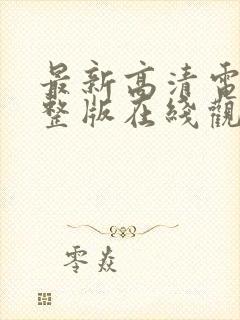 最新高清電
整版在綫觀
零焱